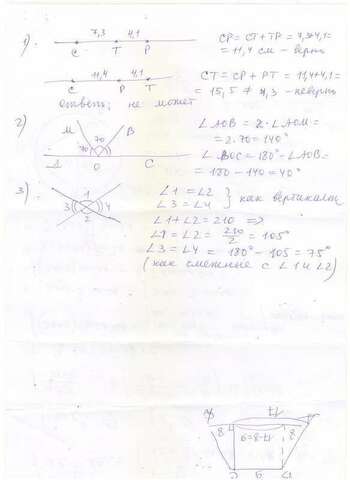 1). 7,3 4,1 CP = CT + TP = 7,3+4,1 =
C T P = 11,4 см - верно
11,4 4,1 CT = CP + PT = 11,4+4,1 =
C P T = 15,5 ≠ 7,3 - неверно
Ответ: не может
2)
M B ∠AOB = 2·∠AOM =
70 70 = 2·70 = 140°
A O C ∠BOC = 180° - ∠AOB =
= 180 - 140 = 40°
3) 1 ∠1 = ∠2 } как вертикальн
3 4 ∠3 = ∠4
2 ∠1 + ∠2 = 210 =>
∠1 = ∠2 = 210/2 = 105°
∠3 = ∠4 = 180° - 105 = 75°
(как смежные с ∠1 и ∠2)
8 6=8-14 8
6